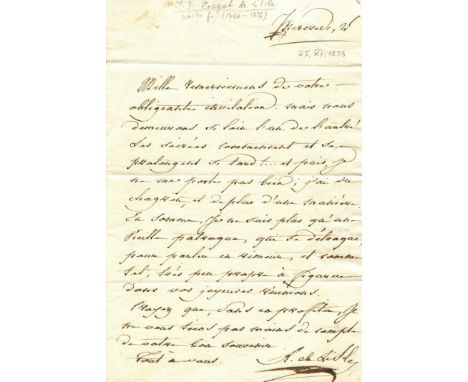 25. XI. 1823
Mille remerciements de votre
obligeante invitation. mais nous
demeurons si loin l'un de l'autre!
Les soirées commencent et se
prolongent si tard!... et puis, je
ne me porte pas bien; j'ai du
chagrin, et de plus d'une manière.
En somme, je ne suis plus qu'une
vieille patraque, qui se détraque,
pour parler en rimeur, et comme
tel, très peu propre à figurer
dans vos joyeuses réunions.
Croyez que, sans en profiter, je
ne vous tiens pas moins de compte
de votre bon souvenir
Tout à vous.